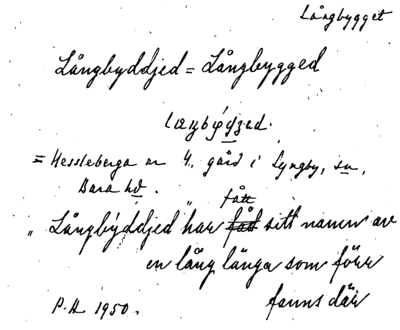 Långbygget
Långbyddjed = Långbygged
= Hessleberga nr 4, gård i Lyngby, sn,
Bara hd.
fått
"Långbyddjed" har fåt sitt namn av
en lång länga som förr
fanns där
P.H. 1950.